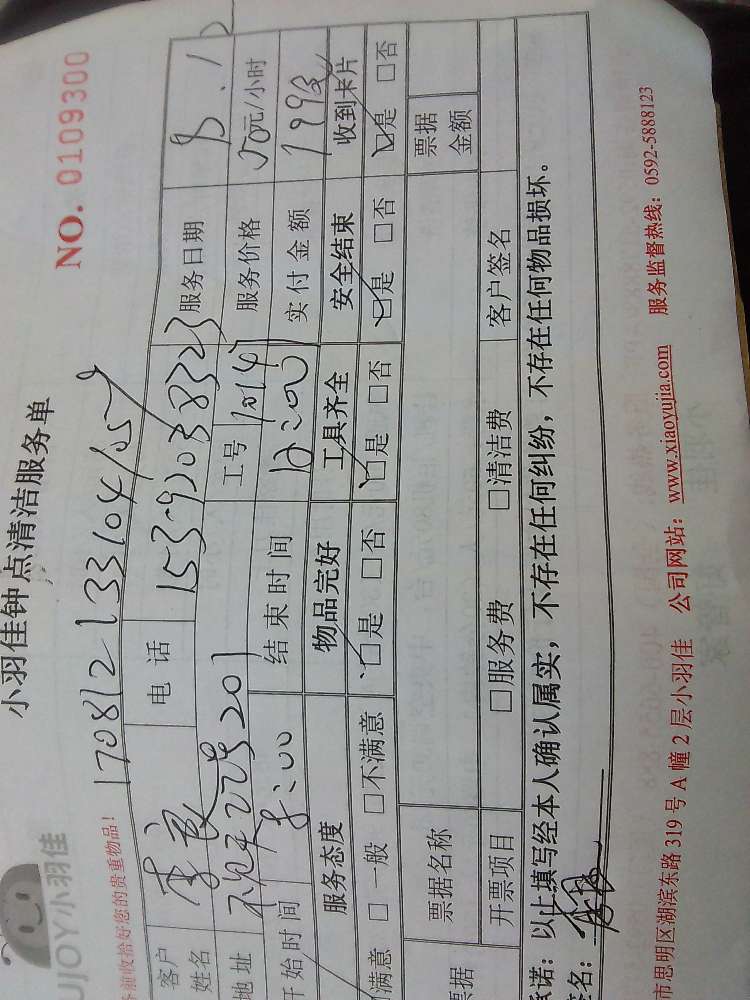 小羽佳钟点清洁服务单
UJOY小羽佳
NO. 0109300
收拾好您的贵重物品!
客户姓名 电话 15392038323 服务日期
地址 工号 服务价格 50元/小时
开始时间 8:00 结束时间 12:00 实付金额
服务态度 物品完好 工具齐全 安全结束 收到卡片
满意 □一般 □不满意 □是 □否 □是 □否 □是 □否 □是 □否
票据 票据名称 票据金额
开票项目 □服务费 □清洁费 客户签名
承诺：以上填写经本人确认属实，不存在任何纠纷，不存在任何物品损坏。
签名：
市思明区湖滨东路319号A幢2层小羽佳 公司网站：www.xiaoyujia.com 服务监督热线：0592-5888123